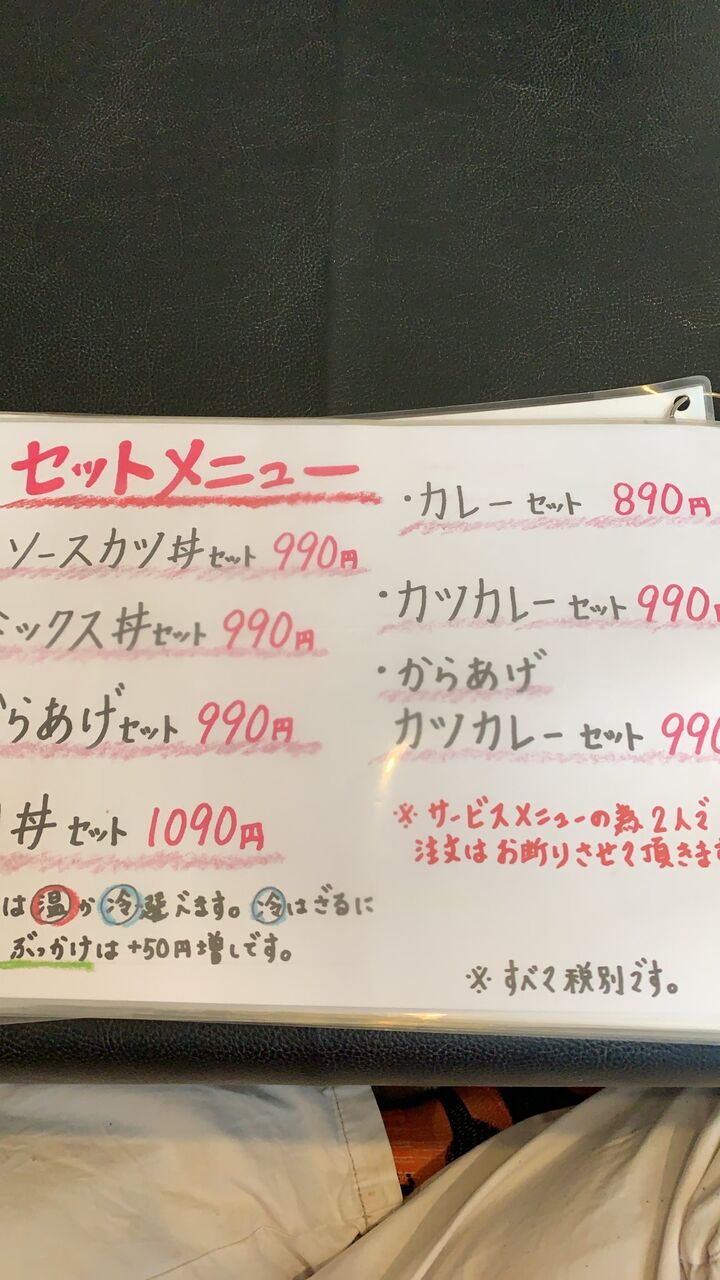 セットメニュー
ソースカツ丼セット 990円
ミックス丼セット 990円
からあげセット 990円
丼セット 1090円
は温か冷選べます。冷はざるに
ぶっかけは+50円増しです。
・カレーセット 890円
・カツカレーセット 990円
・からあげ
カツカレーセット 990
※サービスメニューの為2人で
注文はお断りさせて頂きます
※すべて税別です。